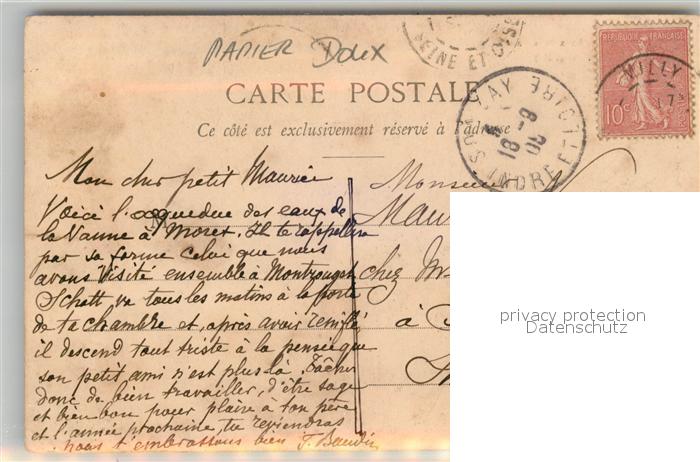 PAPIER DOUX
SEINE ET OISE
REPUBLIQUE FRANÇAISE
10c
MILLY
17
CARTE POSTALE
Ce côté est exclusivement réservé à l'adresse
INDRE ET LOIRE
18 -9
06
Mon cher petit Maurice
Voici l'aqueduc des eaux de
la Vanne à Moret. Il te rappellera
par sa forme celui que nous
avons visité ensemble à Montrouge.
va tous les matins à la porte
de ta chambre et, après avoir reniflé
il descend tout triste à la pensée que
son petit ami n'est plus là. Tâcher
donc de bien travailler, d'être sage
et bien bon pour plaire à ton père
et l'année prochaine, tu reviendras
nous t'embrassons bien
Monsieur
chez
à
privacy protection
Datenschutz